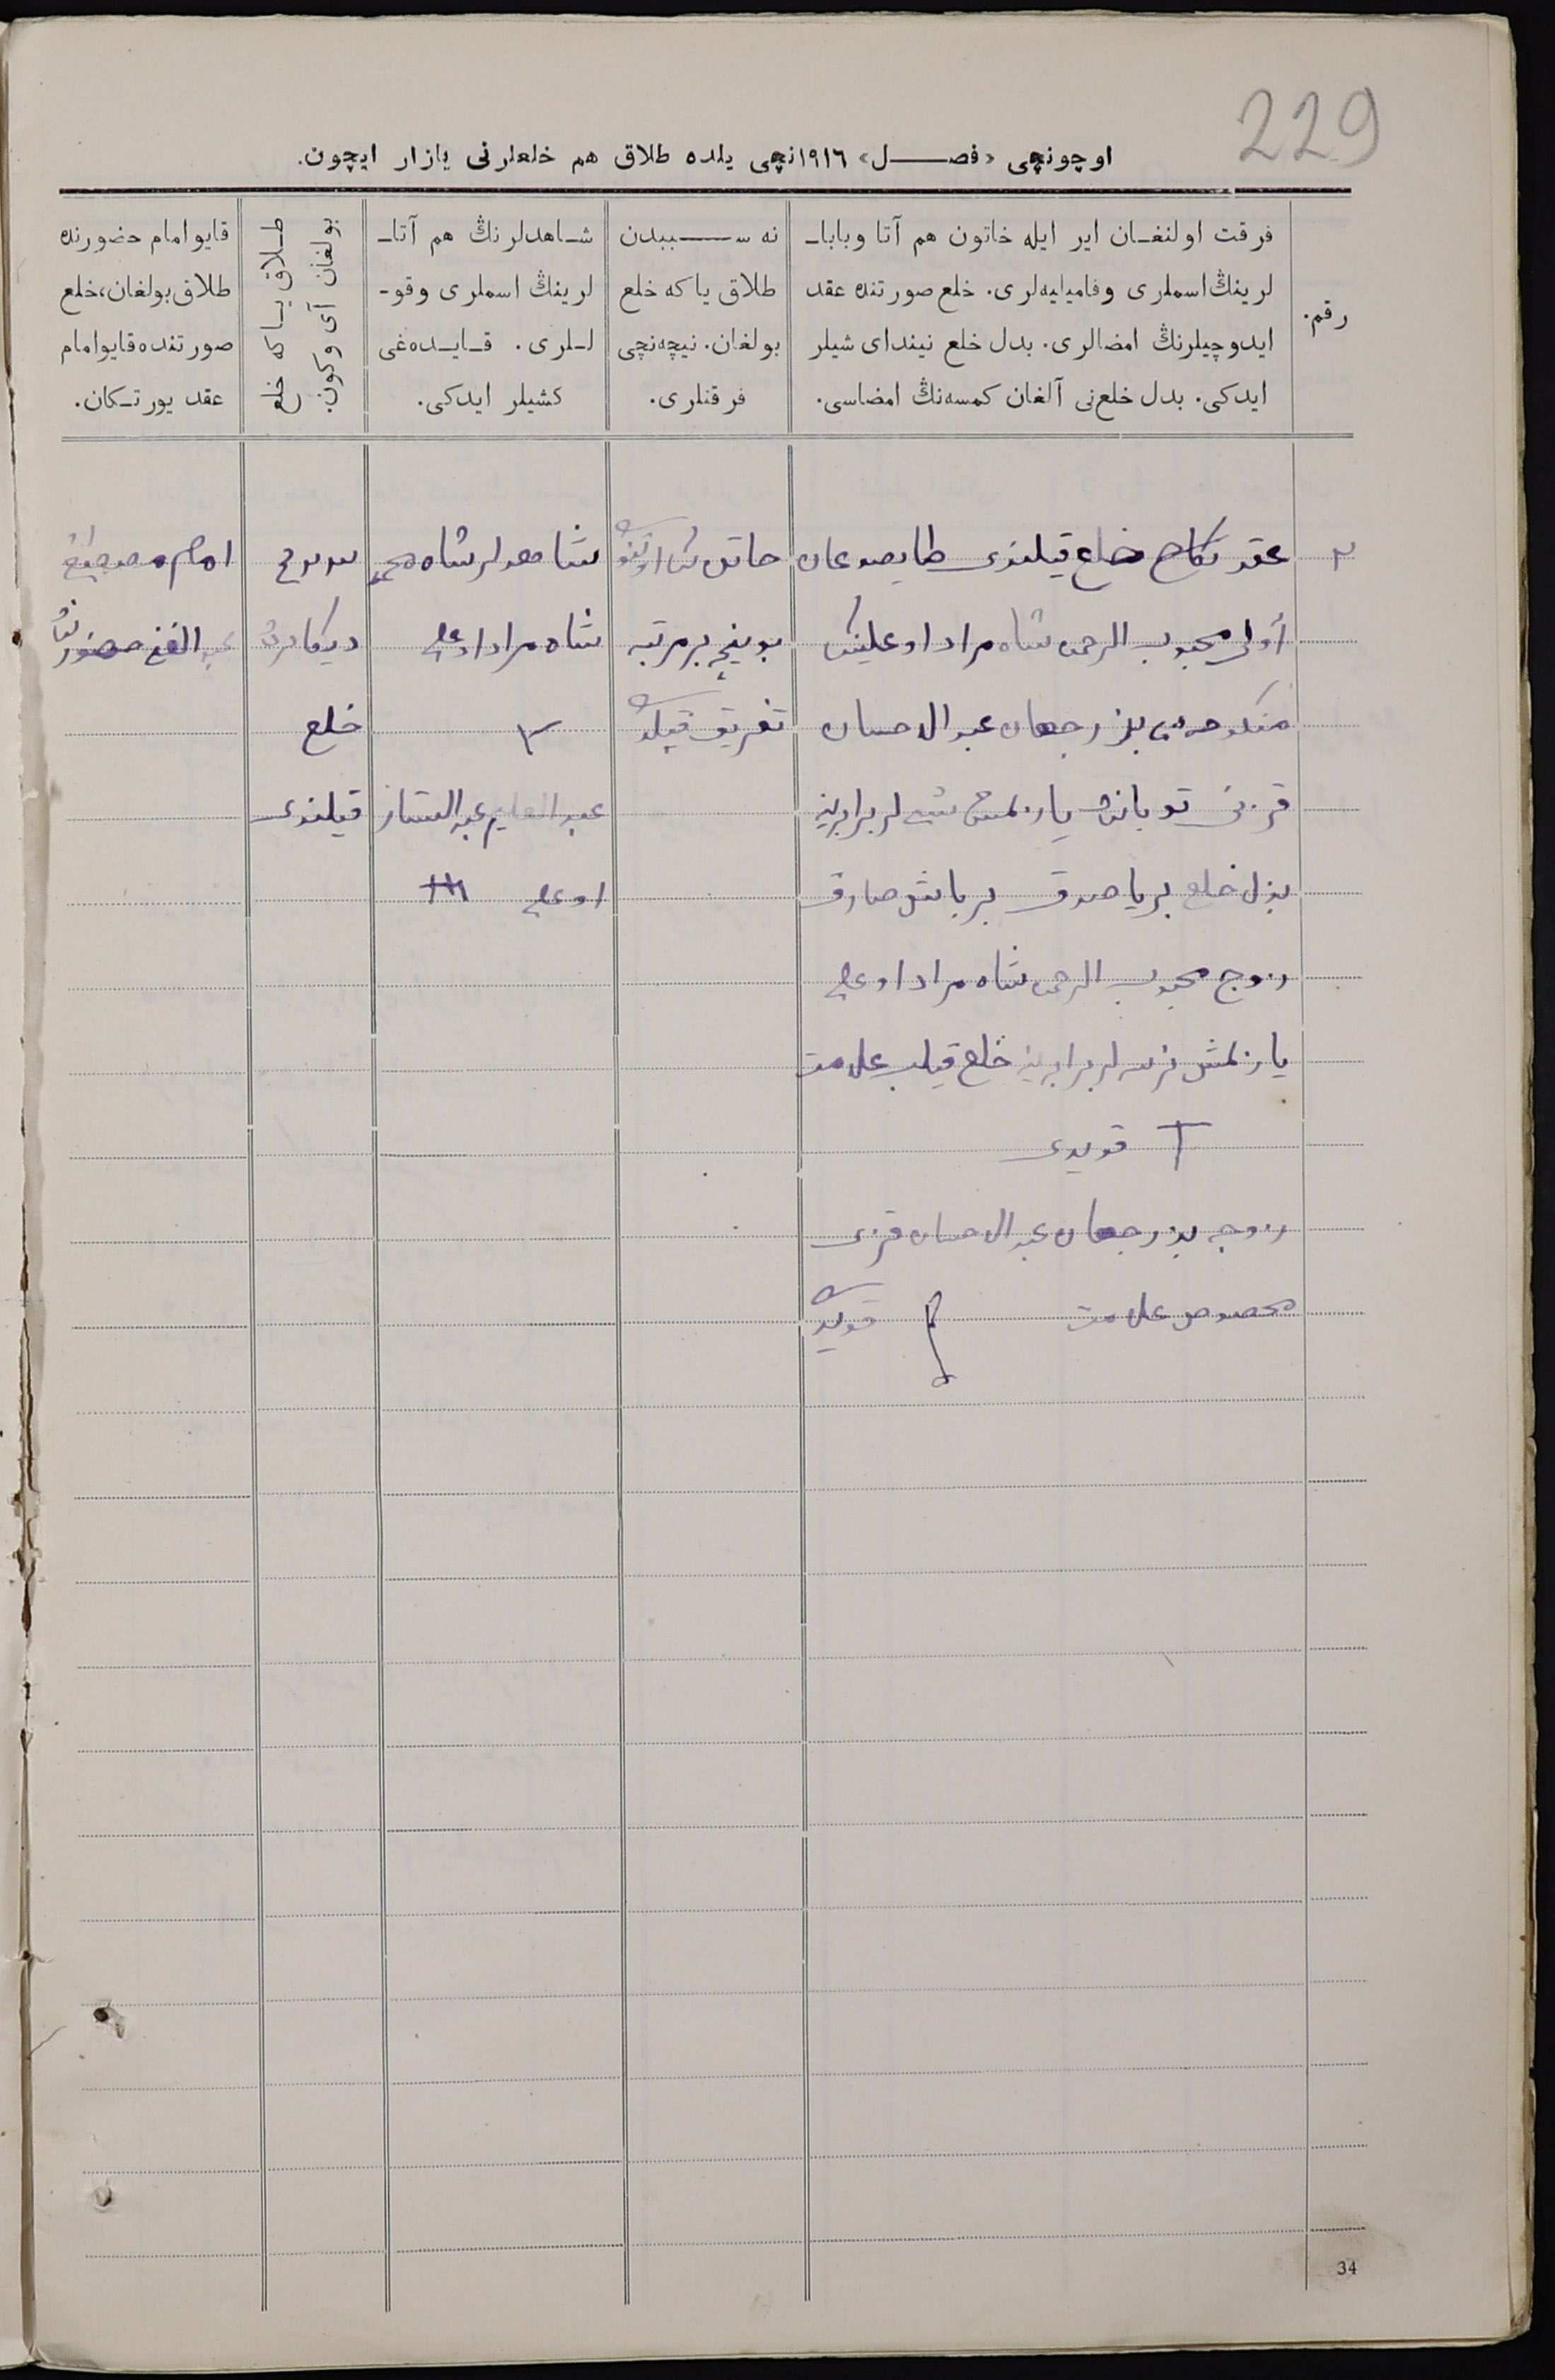 229
اوچونچی «فصل» ١٩١٦نچی یلده طلاق هم خلعلرنی یازار ایچون.
رقم.
فرقت اولنغان ایر ایله خاتون هم آتا وبابا-
لرینڭ اسملری وفامیلیه‌لری. خلع صورتنده عقد
ایدوچیلرنڭ امضالری. بدل خلع نیندای شیلر
ایدکی. بدل خلع‌نی آلغان کمسه‌نڭ امضاسی.
نه سببدن
طلاق یا که خلع
بولغان. نیچه‌نچی
فرقتلری.
شاهدلرنڭ هم آتا-
لرینڭ اسملری وقو-
للری. قایده‌غی
کشیلر ایدکی.
طلاق یا که خلع
بولغان آی و کون.
قایو امام حضورنده
طلاق بولغان، خلع
صورتنده قایو امام
عقد یورتکان.
٢
عقد نکاح خلع قیلندی
محبوب الرحمن شاه مراد اوغلینڭ
منکوحه سی بزرجهان عبدالاحسان
قزنی یازلمش برابرینه
بدل خلع بر یاصدق بر باش صارق
زوج محبوب الرحمن شاه مراد اوغلی
یازلمش نرسه لر برابرینه خلع قیلب علامت
T قویدی
زوجه بزرجهان عبدالاحسان قزی
مخصوص علامت قویدی
خاتون
بوینچه بر مرتبه
تفریق قیلدی
شاهدلر شاه محمد
شاه مراد اوغلی
عبدالعلیم عبدالستار
اوغلی
دیکابرده
خلع
قیلندی
امام
عبدالغنی حضورنده
34